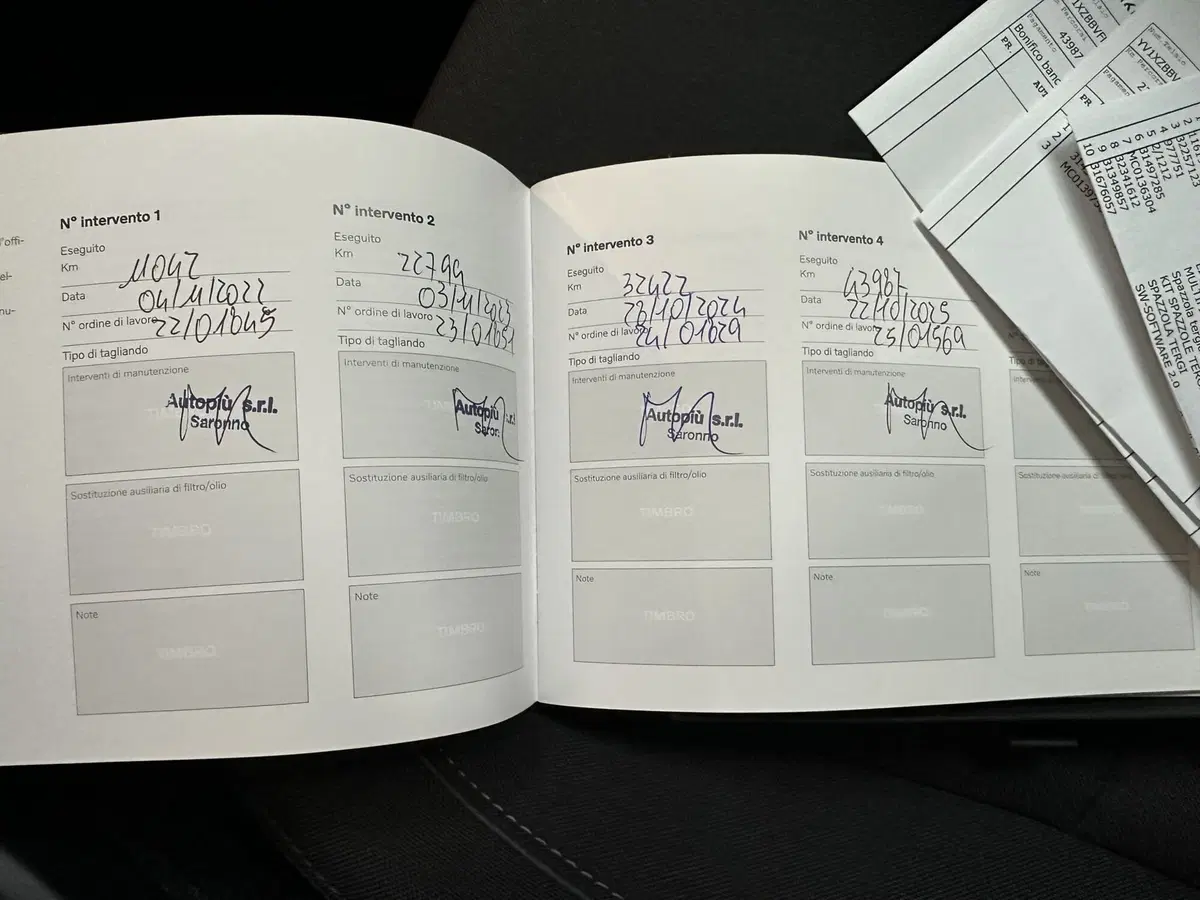 l'offi-
el-
nu-
N° intervento 1
Eseguito
Km 11042
Data 04/11/2022
N° ordine di lavoro 22/01845
Tipo di tagliando
Interventi di manutenzione
Autopiù s.r.l.
Saronno
Sostituzione ausiliaria di filtro/olio
TIMBRO
Note
TIMBRO
N° intervento 2
Eseguito
Km 22799
Data 03/11/2023
N° ordine di lavoro 23/01651
Tipo di tagliando
Interventi di manutenzione
Autopiù s.r.l.
Saron
Sostituzione ausiliaria di filtro/olio
TIMBRO
Note
TIMBRO
N° intervento 3
Eseguito
Km 32422
Data 28/10/2024
N° ordine di lavoro 24/01629
Tipo di tagliando
Interventi di manutenzione
Autopiù s.r.l.
Saronno
Sostituzione ausiliaria di filtro/olio
TIMBRO
Note
TIMBRO
N° intervento 4
Eseguito
Km 43987
Data 22/10/2025
N° ordine di lavoro 25/01569
Tipo di tagliando
Interventi di manutenzione
Autopiù s.r.l.
Saronno
Sostituzione ausiliaria di filtro/olio
TIMBRO
Note
TIMBRO
Tipo di
Sostituzione ausiliaria di
TIMBRO
Note
TIMBRO
43987
Pagamento
Bonifico banc
PR.
AUT
Num. Telaio
YV1XZBBV
PR
1
2
3
4 977751
5 2/1212
6 31497285
7 MC0136304
8 32341612
9 31349857
10 31676057
KIT SPAZZOLE TER
SPAZZOLA TERGI
SW-SOFTWARE 2.0